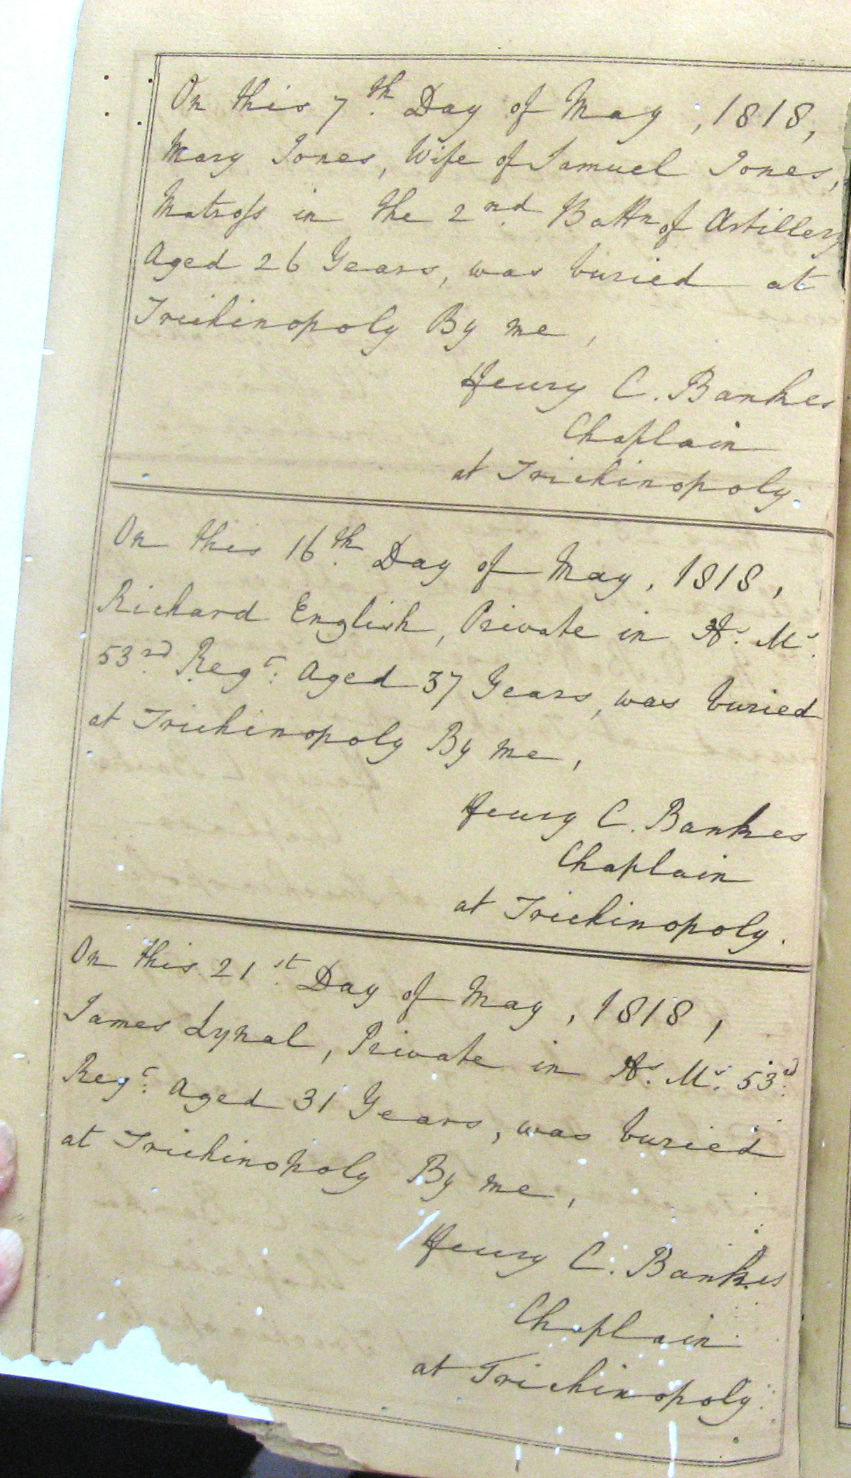 On this 7th. Day of May, 1818,
Mary Jones, Wife of Samuel Jones,
Matross in the 2nd. Battn of Artillery
Aged 26 Years, was buried at
Trichinopoly By me,
Henry C. Bankes
Chaplain
at Trichinopoly.
On this 16th. Day of May, 1818,
Richard English, Private in H.s M.s
53rd. Regt. Aged 37 Years, was buried
at Trichinopoly By me,
Henry C. Bankes
Chaplain
at Trichinopoly.
On this 21st. Day of May, 1818,
James Lynal, Private in H.s M.s 53d.
Regt. Aged 31 Years, was buried
at Trichinopoly By me,
Henry C. Bankes
Chaplain
at Trichinopoly.